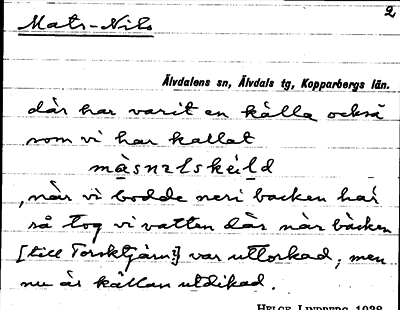 2
Mats-Nils
Älvdalens sn, Älvdals tg, Kopparbergs län.
där har varit en källa också
som vi har kallat
màsnɪlskéild
, när vi bodde neri backen här
så tog vi vatten där när bäcken
[till Torsktjärn?] var uttorkad, men
nu är källan utdikad.
HELGE LINDBERG 1928